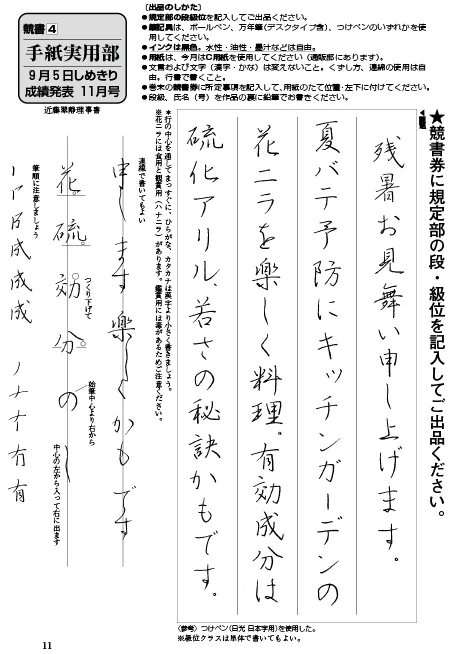 競書4
手紙実用部
9月5日しめきり
成績発表 11月号
近藤翠静理事書
[出品のしかた]
●規定部の段級位を記入してご出品ください。
●筆記具は、ボールペン、万年筆(デスクタイプ含)、つけペンのいずれかを使用してください。
●インクは黒色。水性・油性・墨汁などは自由。
●用紙は、今月はC用紙を使用してください(通販部にあります)。
●文言および文字(漢字・かな)は変えないこと。くずし方、連綿の使用は自由。行書で書くこと。
●巻末の競書券に所定事項を記入して、用紙のたて位置・左下に付けてください。
●段級、氏名(号)を作品の裏に鉛筆でお書きください。
★競書券に規定部の段・級位を記入してご出品ください。
残暑お見舞い申し上げます。
夏バテ予防にキッチンガーデンの
花ニラを楽しく料理。有効成分は
硫化アリル、若さの秘訣かもです。
*行の中心を通してまっすぐに、ひらがな、カタカナは漢字より小さく書きましょう。
※花ニラには食用と観賞用(ハナニラ)があります。鑑賞用には毒があるためご注意ください。
連綿で書いてもよい
申します楽しくかもです
花硫効分のし
つくり下げて
始筆中心より右から
中心の左から入って右に出ます
筆順に注意しましょう
成成成
ノナ有有
(参考) つけペン(日光 日本字用)を使用した。
※級位クラスは単体で書いてもよい。
11